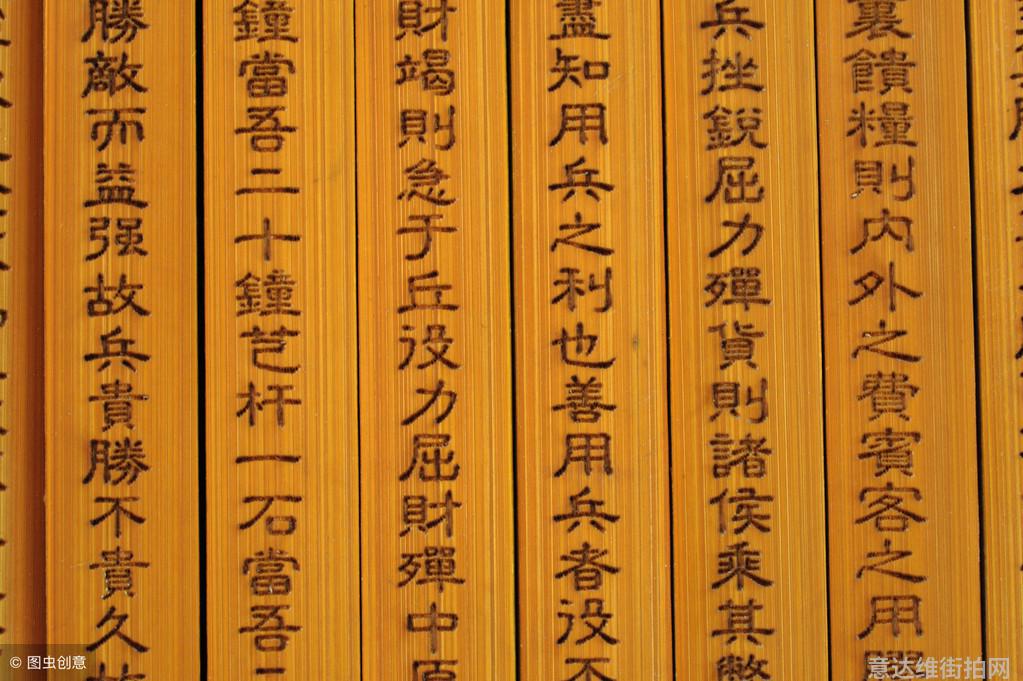 裏饋糧則内外之費賓客之用膠
兵挫銳屈力殫貨則諸侯乘其弊
盡知用兵之利也善用兵者役不
財竭則急于丘役力屈財殫中原
鐘當吾二十鐘芑杆一石當吾二
勝敵而益强故兵貴勝不貴久故
© 图虫创意
意达维街拍网